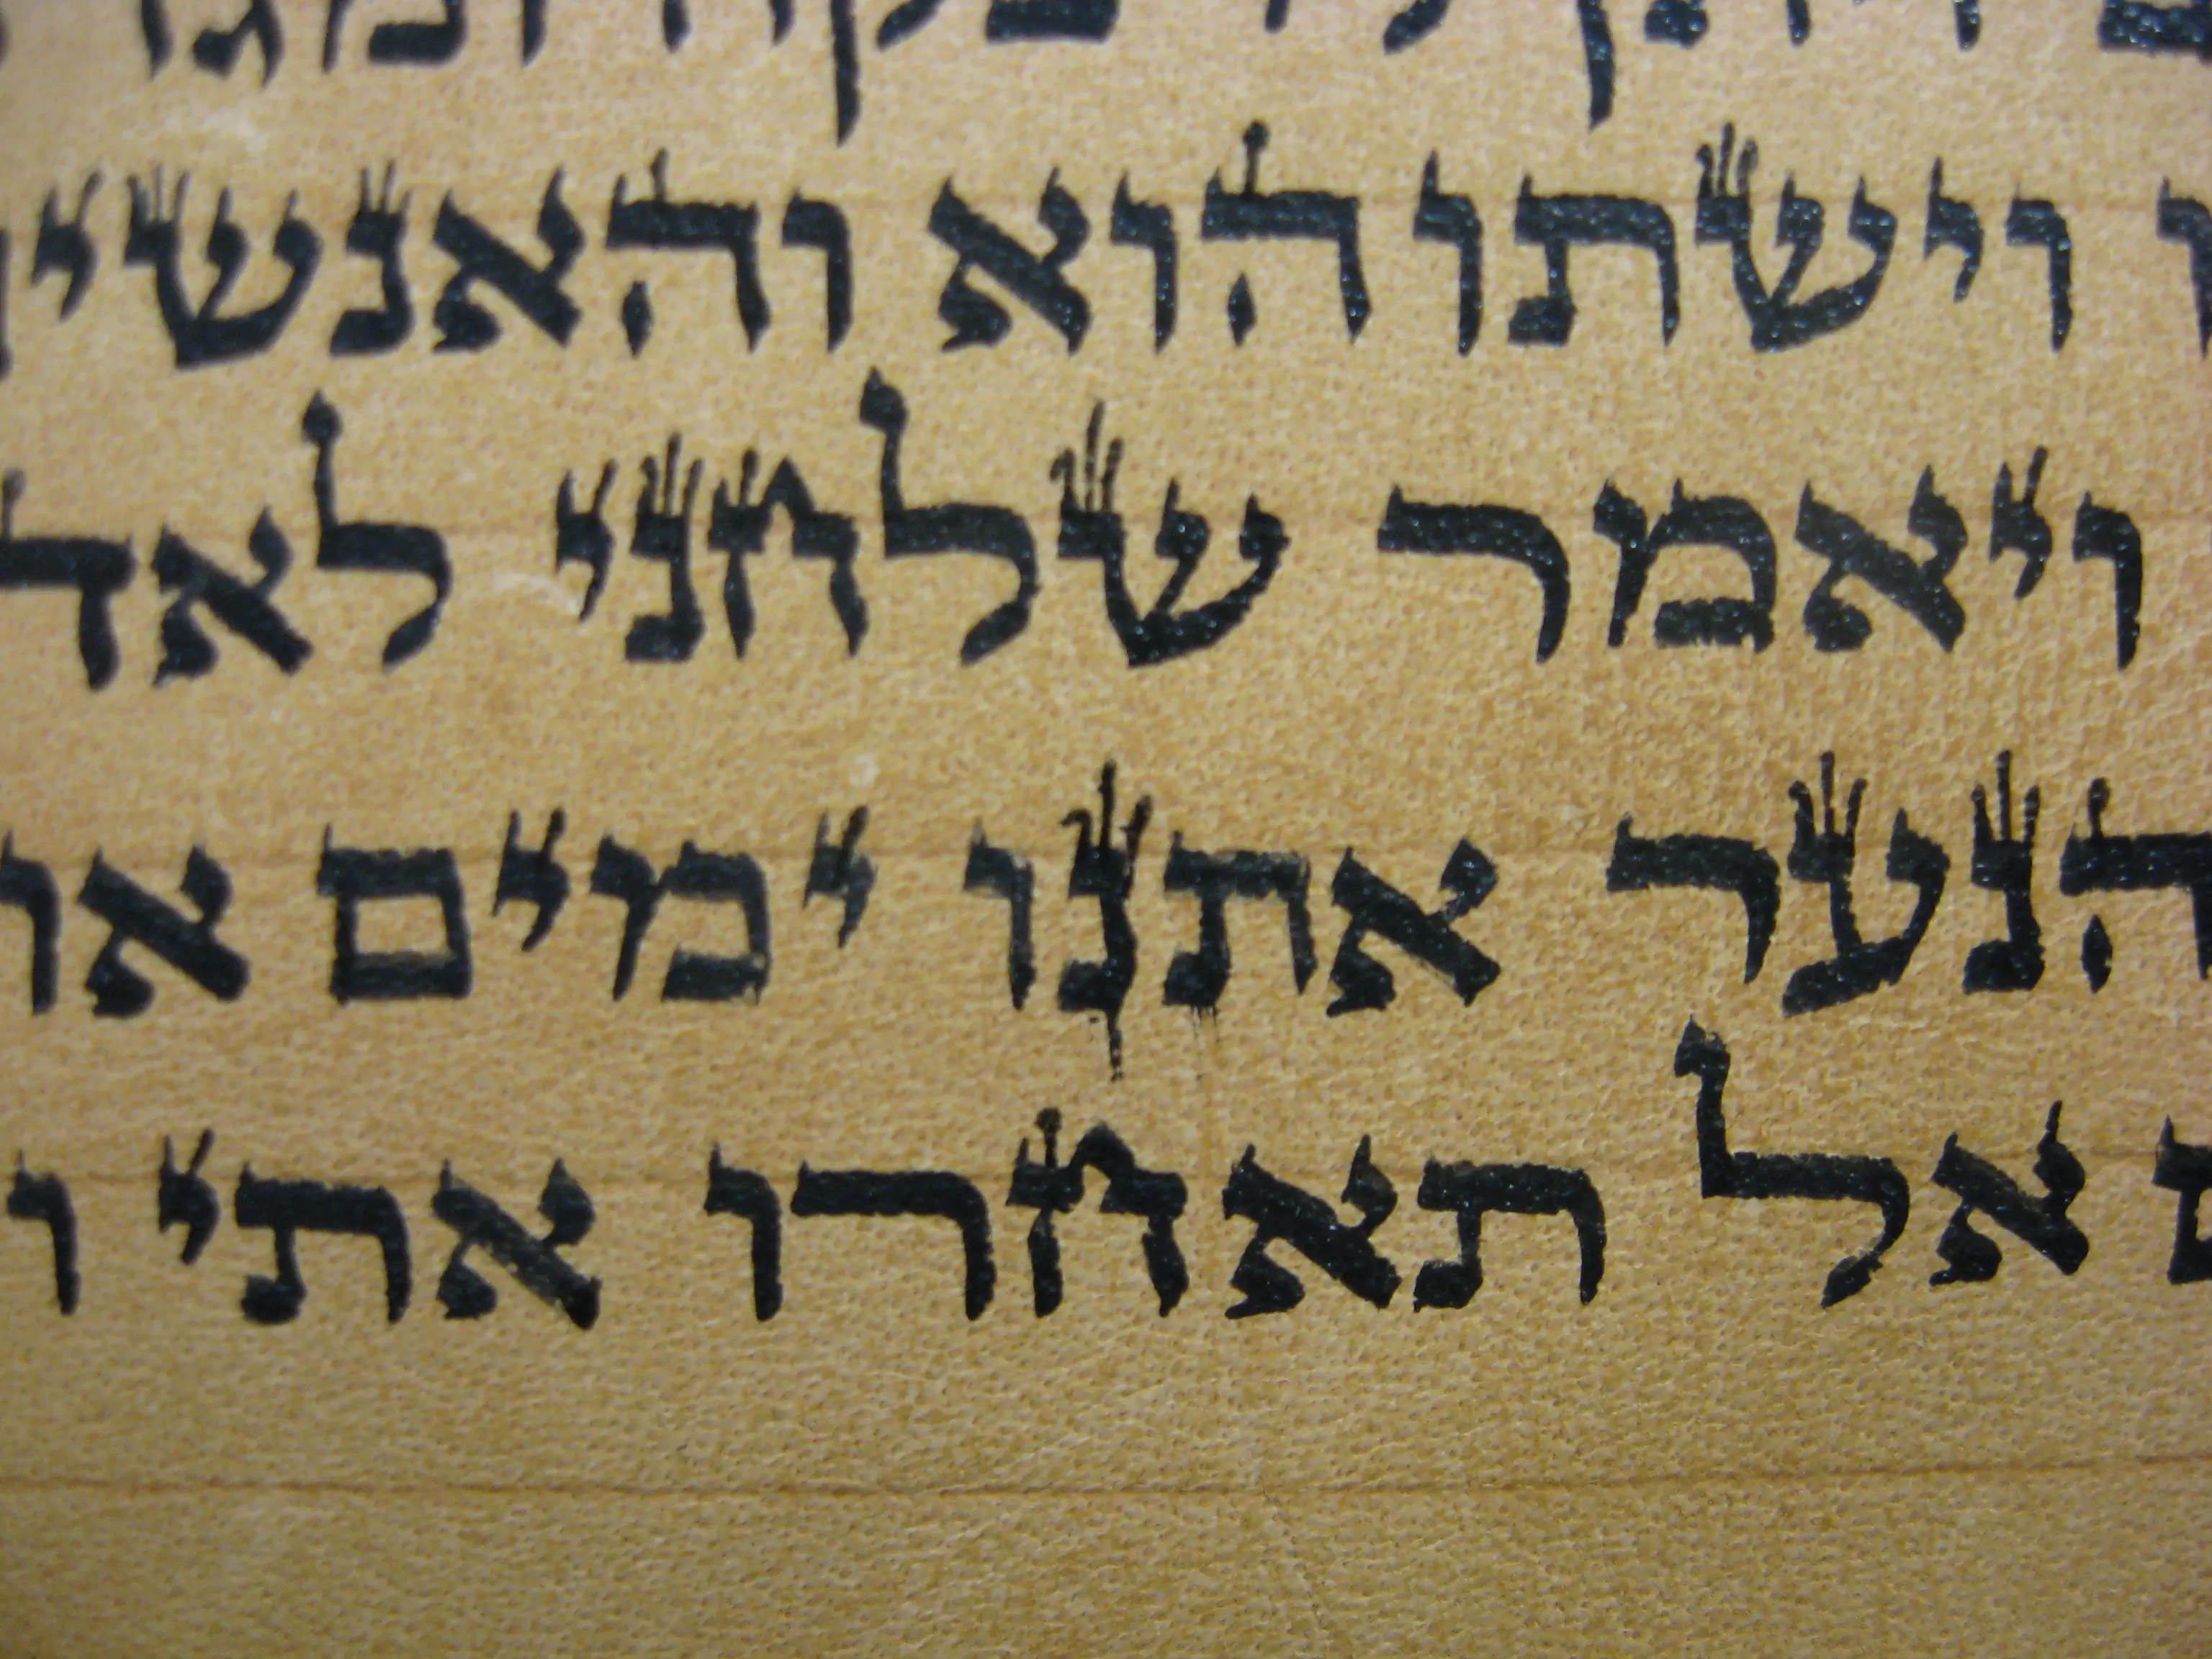 וישתו הוא והאנשי
ויאמר שלחני לאד
הנער אתנו ימים או
אל תאחרו אתי ו